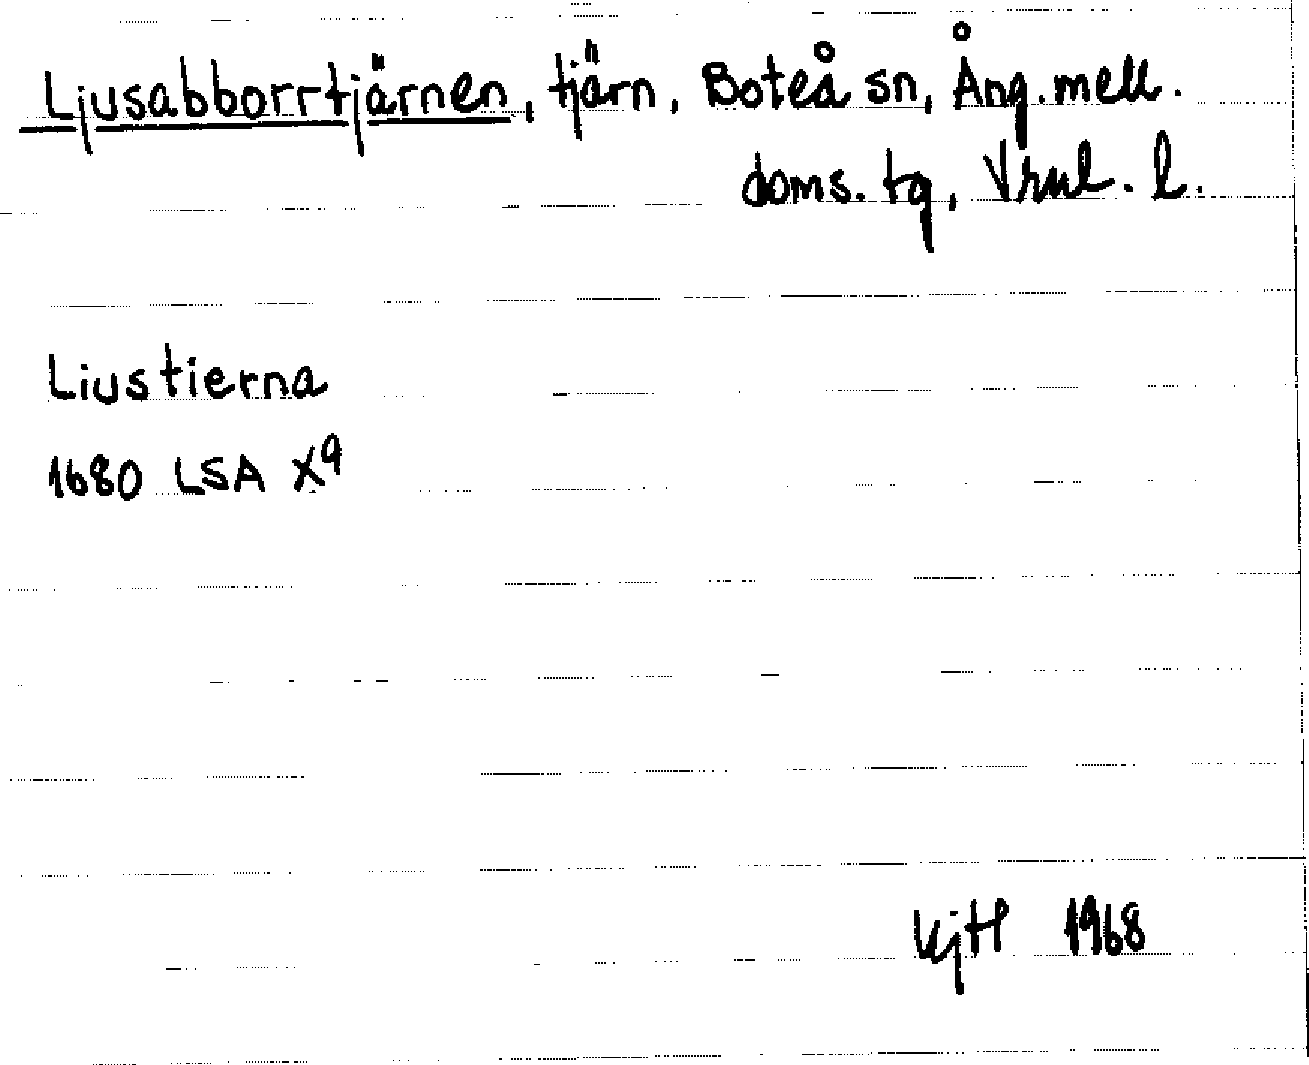 Ljusabborrtjärnen, tjärn, Boteå sn, Ång. mell.
doms. tg, Vrnl. l.
Liustierna
1680 LSA X9
KjH 1968